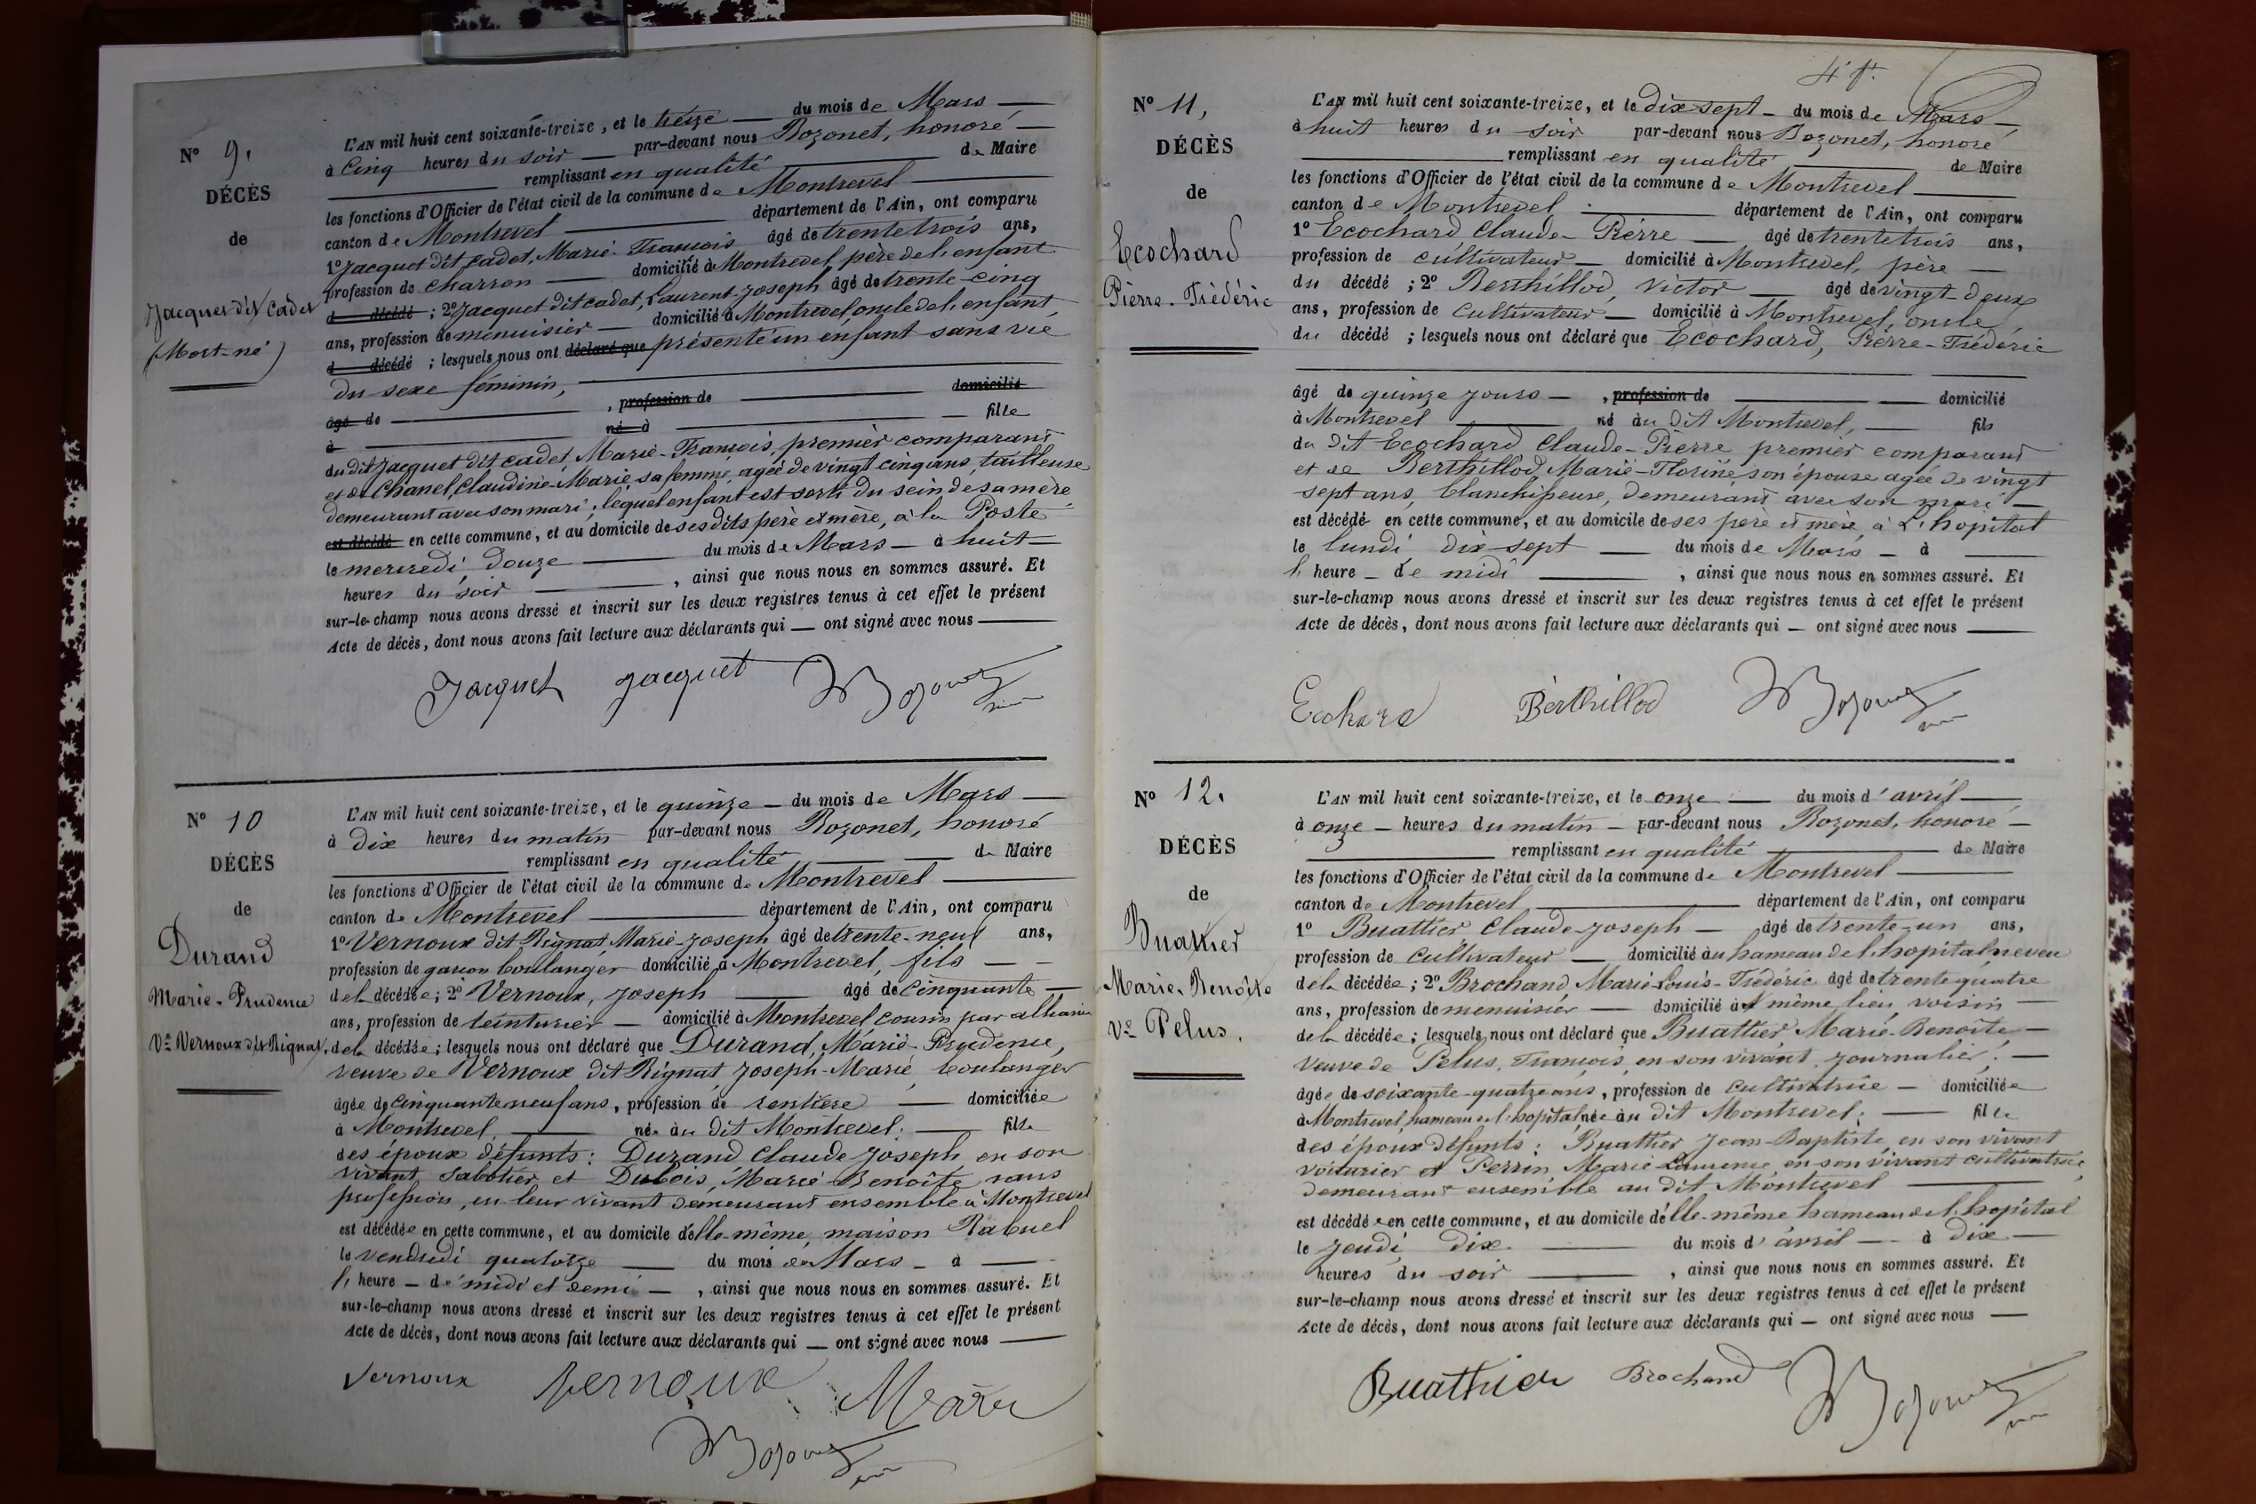 N° 9.
DÉCÈS
de
Jacquet dit Cadet
(Mort-né)
L'AN mil huit cent soixante-treize, et le treize du mois de Mars
à Cinq heures du soir par-devant nous Bozonet, honoré
remplissant en qualité de Maire
les fonctions d'Officier de l'état civil de la commune de Montrevel
canton de Montrevel département de l'Ain, ont comparu
1° Jacquet dit Cadet, Marie-François âgé de trente trois ans,
profession de charron domicilié à Montrevel, père de l'enfant
d décédé ; 2° Jacquet dit cadet, Laurent-Joseph âgé de trente-cinq
ans, profession de menuisier domicilié à Montrevel oncle de l'enfant
d décédé ; lesquels nous ont déclaré que présenté un enfant sans vie
du sexe féminin,
âgé de , profession de domicilié
à né à fille
du dit Jacquet dit cadet, Marie-François, premier comparant
et de Chanel, Claudine-Marie, sa femme, agée de vingt cinq ans, tailleuse
demeurant avec son mari ; lequel enfant est sorti du sein de sa mère
est décédé en cette commune, et au domicile de ses dits père et mère, à la Poste
le mercredi douze du mois de Mars à huit
heures du soir , ainsi que nous nous en sommes assuré. Et
sur-le-champ nous avons dressé et inscrit sur les deux registres tenus à cet effet le présent
Acte de décès, dont nous avons fait lecture aux déclarants qui ont signé avec nous
Jacquet Jacquet Bozonet
N° 10
DÉCÈS
de
Durand
Marie-Prudence
Ve Vernoux dit Rignat.
L'AN mil huit cent soixante-treize, et le quinze du mois de Mars
à dix heures du matin par-devant nous Bozonet, honoré
remplissant en qualité de Maire
les fonctions d'Officier de l'état civil de la commune de Montrevel
canton de Montrevel département de l'Ain, ont comparu
1° Vernoux dit Rignat, Marie-Joseph âgé de trente-neuf ans,
profession de garçon boulanger domicilié à Montrevel, fils
de la décédée ; 2° Vernoux, Joseph âgé de Cinquante
ans, profession de teinturier domicilié à Montrevel cousin par alliance
de la décédée ; lesquels nous ont déclaré que Durand, Marie-Prudence,
veuve de Vernoux dit Rignat, Joseph-Marie, boulanger
âgée de cinquante neuf ans, profession de rentière domiciliée
à Montrevel, née au dit Montrevel ; fille
des époux défunts : Durand Claude Joseph en son
vivant sabotier et Dubois, Marie Benoîte sans
profession, en leur vivant demeurant ensemble à Montrevel
est décédée en cette commune, et au domicile d'elle-même, maison Rabuel
le vendredi quatorze du mois de Mars à
l' heure de midi et demi , ainsi que nous nous en sommes assuré. Et
sur-le-champ nous avons dressé et inscrit sur les deux registres tenus à cet effet le présent
Acte de décès, dont nous avons fait lecture aux déclarants qui ont signé avec nous
Vernoux Vernoux
Bozonet
4 f.
N° 11,
DÉCÈS
de
Ecochard
Pierre-Frédéric
L'AN mil huit cent soixante-treize, et le dix sept du mois de Mars
à huit heures du soir par-devant nous Bozonet, honoré
remplissant en qualité de Maire
les fonctions d'Officier de l'état civil de la commune de Montrevel
canton de Montrevel département de l'Ain, ont comparu
1° Ecochard Claude-Pierre âgé de trente trois ans,
profession de cultivateur domicilié à Montrevel, père
du décédé ; 2° Berthillod, Victor âgé de vingt-deux
ans, profession de Cultivateur domicilié à Montrevel, oncle
du décédé ; lesquels nous ont déclaré que Ecochard, Pierre-Frédéric
âgé de quinze jours , profession de domicilié
à Montrevel né au dit Montrevel, fils
du dit Ecochard Claude-Pierre premier comparant
et de Berthillod, Marie-Florine son épouse agée de vingt
sept ans, blanchisseuse, demeurant avec son mari
est décédé en cette commune, et au domicile de ses père et mère à L'hopital
le lundi dix-sept du mois de Mars à
l' heure de midi , ainsi que nous nous en sommes assuré. Et
sur-le-champ nous avons dressé et inscrit sur les deux registres tenus à cet effet le présent
Acte de décès, dont nous avons fait lecture aux déclarants qui ont signé avec nous
Ecohard Berthillod Bozonet
N° 12.
DÉCÈS
de
Buathier
Marie-Benoîte
Ve Pelus.
L'AN mil huit cent soixante-treize, et le onze du mois d'avril
à onze heures du matin par-devant nous Bozonet, honoré
remplissant en qualité de Maire
les fonctions d'Officier de l'état civil de la commune de Montrevel
canton de Montrevel département de l'Ain, ont comparu
1° Buattier Claude-Joseph âgé de trente-un ans,
profession de Cultivateur domicilié au hameau de l'hopital neveu
de la décédée ; 2° Brochand Marie-Louis-Frédéric âgé de trente quatre
ans, profession de menuisier domicilié à même lieu, voisin
de la décédée ; lesquels nous ont déclaré que Buattier Marie-Benoîte
veuve de Pelus, François, en son vivant journalier.
âgée de soixante-quatre ans, profession de cultivatrice domiciliée
à Montrevel, hameau de l'hopital née au dit Montrevel ; fille
des époux défunts : Buattier Jean-Baptiste en son vivant
voiturier et Perrin, Marie Laurence, en son vivant cultivatrice,
demeurant ensemble au dit Montrevel
est décédée en cette commune, et au domicile d'elle-même hameau de l'hopital
le jeudi dix du mois d'avril à dix
heures du soir , ainsi que nous nous en sommes assuré. Et
sur-le-champ nous avons dressé et inscrit sur les deux registres tenus à cet effet le présent
Acte de décès, dont nous avons fait lecture aux déclarants qui ont signé avec nous
Buathier Brochand Bozonet